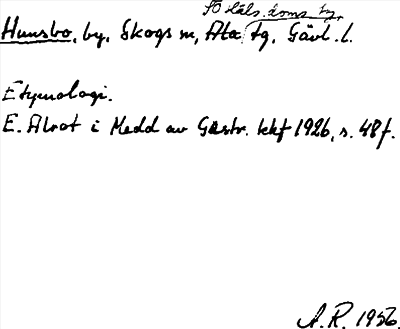 SÖ Häls. doms tg,
Hunsbo, by, Skogs sn, Ala tg, Gävl. l.
Etymologi.
E. Alrot i Medd av Gästr. kkf 1926, s. 48f.
A. R. 1956.